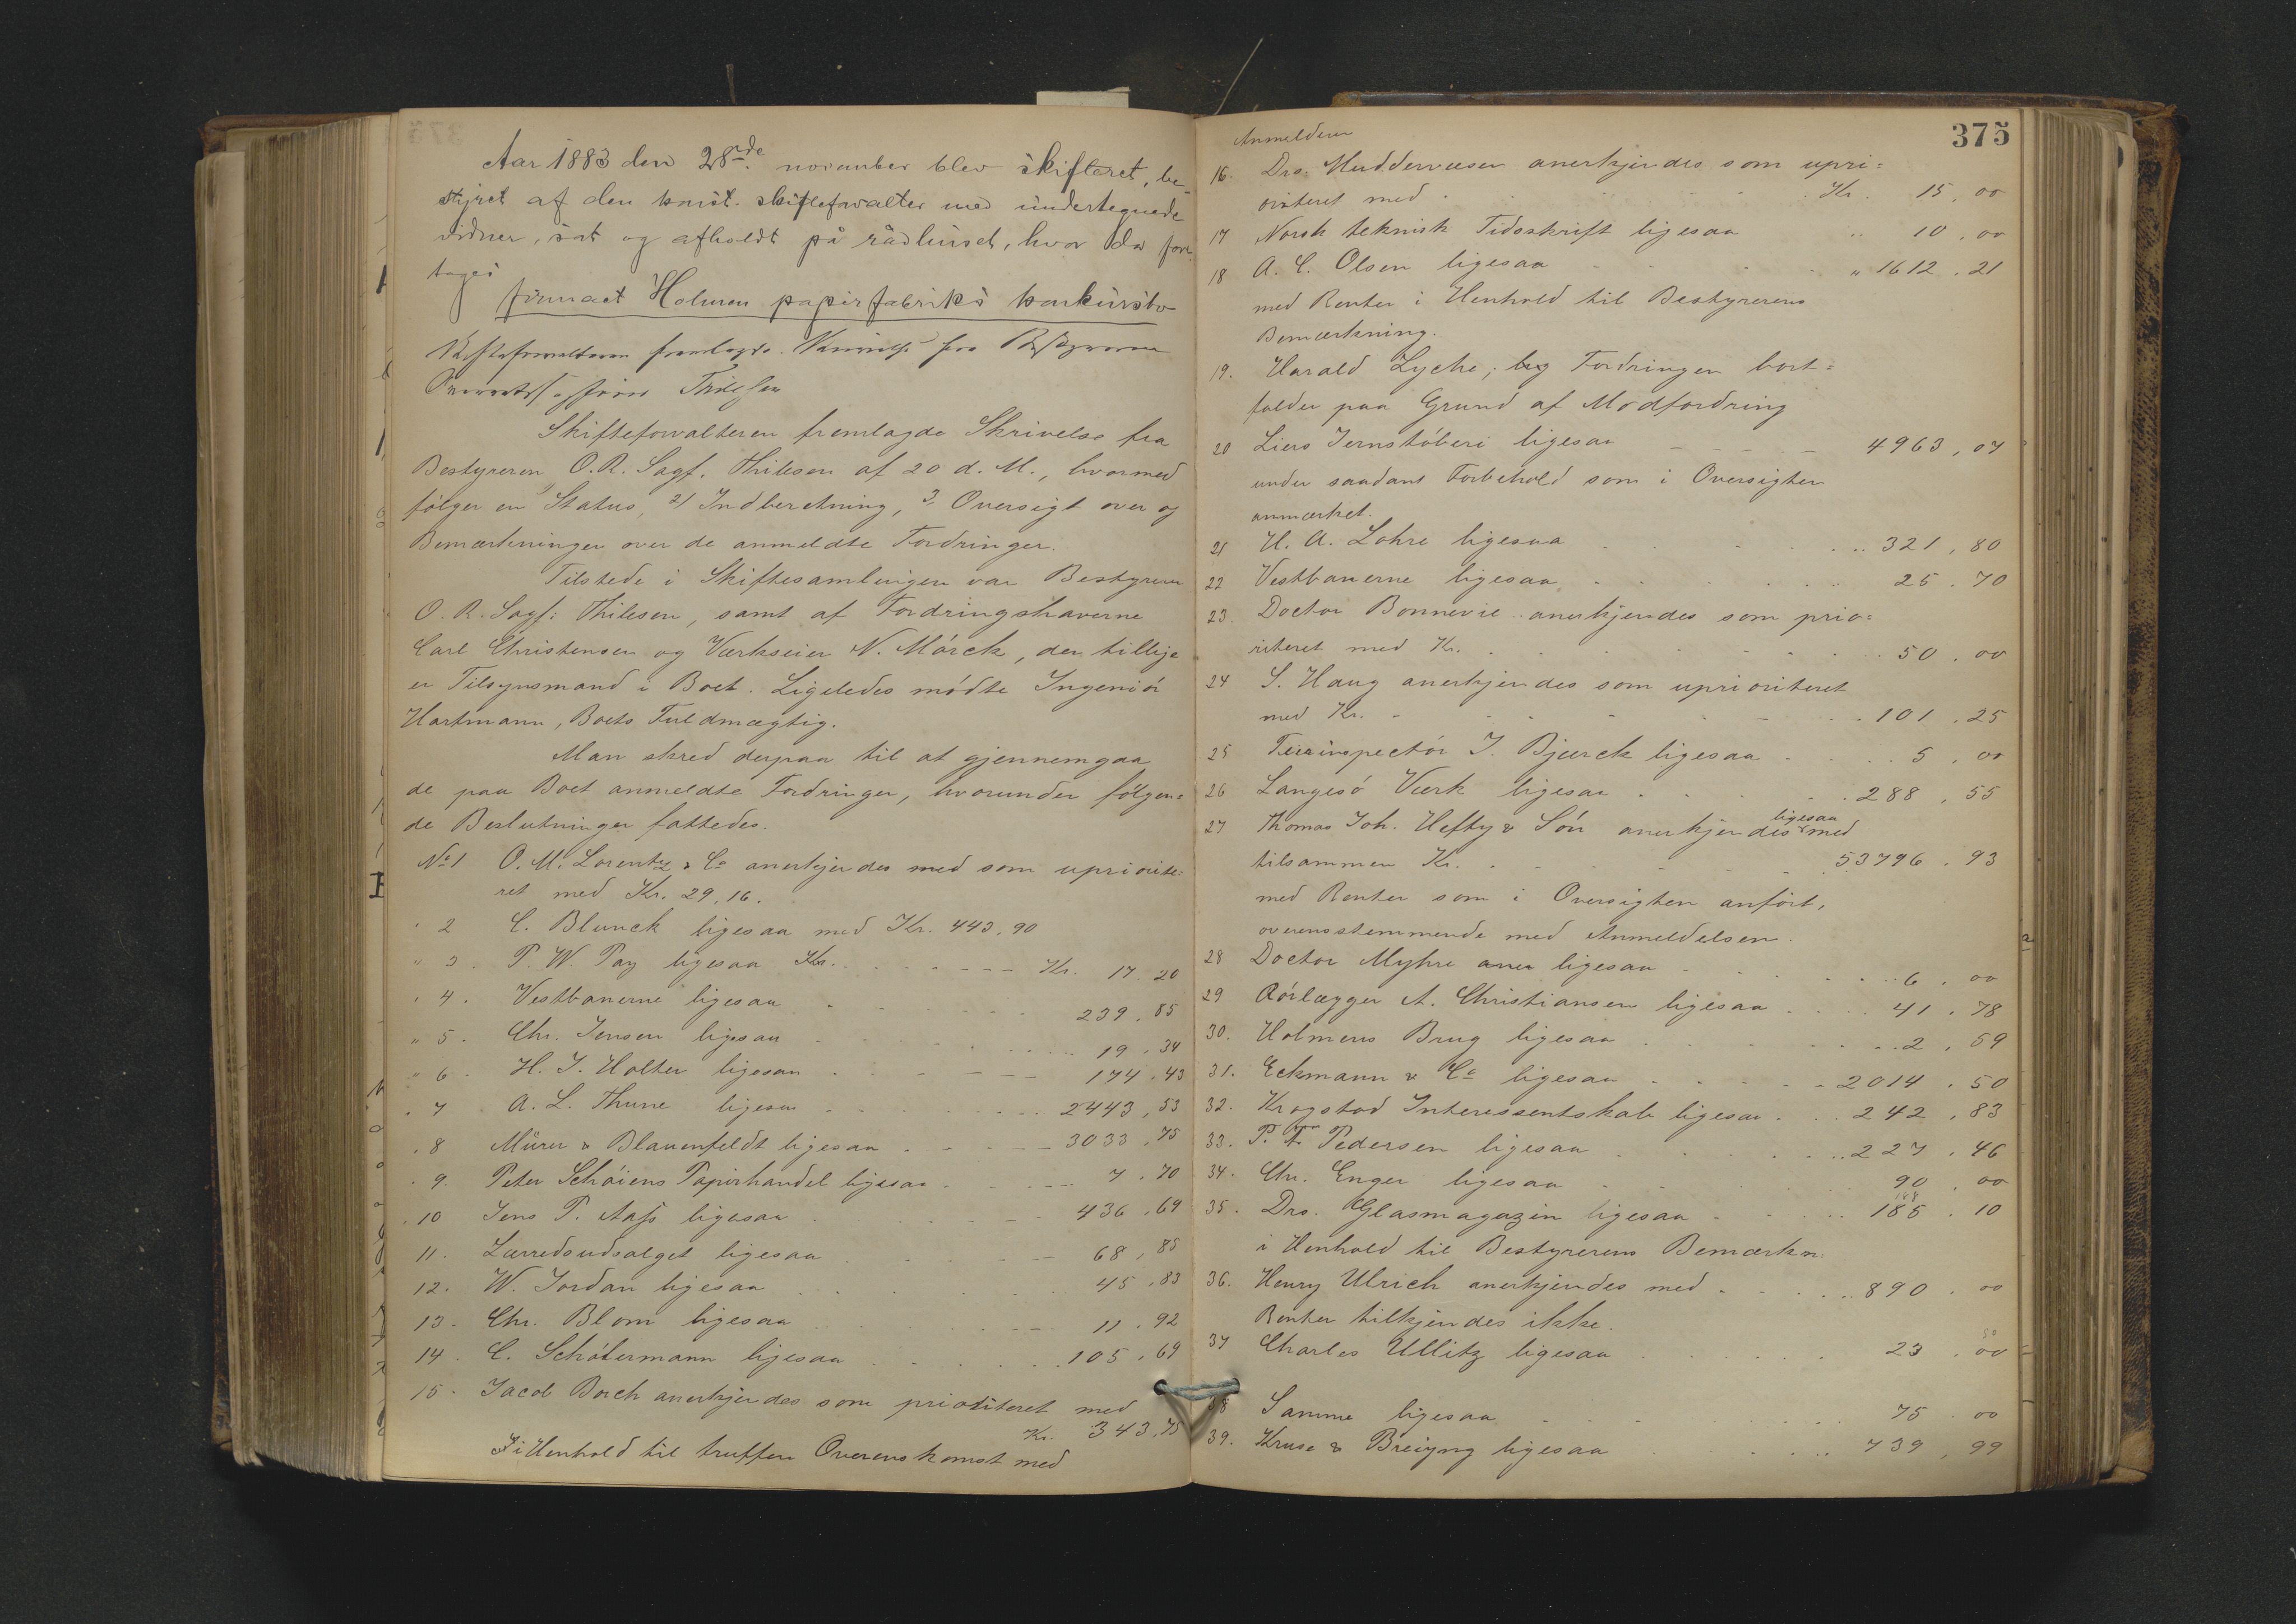 Aar 1883 den 28nde november blev skifteret, be-
styret af den const. skifteforvalter med undertegnede
vidner, sat og afholdt på rådhuset, hvor da fore-
toges
firmaet Holmen papirfabriks konkursbo
Skifteforvalteren fremlagde Skrivelse fra Bestyreren
Overretssagfører Thilesen
Skifteforvalteren fremlagde Skrivelse fra
Bestyreren O.R. Sagf. Thilesen af 20 d. M., hvormed
følger en 1) Status, 2) Indberetning, 3, Oversigt over og
Bemærkninger over de anmeldte Fordringer.
Tilstede i Skiftesamlingen var Bestyreren
O. R. Sagf: Thilesen, samt af Fordringshaverne
Carl Christensen og Værkseier N. Mórck, der tillige
er Tilsynsmand i Boet. Ligeledes módte Ingeniór
Hartmann, Boets Fuldmægtig.
Man skred derpaa til at gjennemgaa
de paa Boet anmeldte Fordringer, hvorunder fólgen=
de Beslutninger fattedes.
No 1 O. M. Lorentz & Co anerkjendes med som upriorite=
ret med Kr. 29,16.
" 2 C. Blunck ligesaa med Kr. 443,90
" 3. P. W. Pay ligesaa Kr. Kr. 17.20
" 4. Vestbanerne ligesaa 239,85
" 5. Chr. Jensen ligesaa 19,34
" 6 H. J. Holter ligesaa 174,43
" 7 A. L. Thune ligesaa 2443,53
" 8 Mürer & Blauenfeldt ligesaa 3033,75
" 9. Peter Schóiens Papirhandel ligesaa 7,70
" 10 Jens P. Aass ligesaa 436,69
11. Lærredsudsalget ligesaa 68,85
12. W. Jordan ligesaa 45,83
13. Chr. Blom ligesaa 11,92
14. C. Schótermann ligesaa 105,69
15. Jacob Borch anerkjendes som prioriteret med
Kr. 343,75
i Henhold til truffen Overenskomst med
375
Anmelderen
16. Drs. Huddervæsen anerkjendes som upri=
oriteret med Kr. 15,00
17 Norsk teknisk Tidsskrift ligesaa " 10,00
18 A. C. Olsen ligesaa " 1612,21
med Renter i Henhold til Bestyrerens
Bemærkning.
19. Harald Lyche; lig Fordringen bort=
falder paa Grund af Modfordring
20 Liers Jernstóberi ligesaa 4963,07
under saadant Forbehold som i Oversigten
anmærket.
21 H. A. Lohre ligesaa 321,80
22 Vestbanerne ligesaa 25.70
23. Doctor Bonnevie anerkjendes som prio=
riteret med Kr. 50.00
24 S. Haug anerkjendes som uprioriteret
med Kr. 101,25
25 J. Bjerck ligesaa 5,00
26 Langesó Værk ligesaa 288,55
27 Thomas Joh. Hefty & Són anerkjendes ligesaa med
tilsammen Kr. 53796.93
med Renter som i Oversigten anfórt,
overensstemmende med Anmeldelsen.
28 Doctor Myhre aner ligesaa 6.00
29 Rórlægger A. Christiansen ligesaa 41,78
30. Holmens Brug ligesaa 2,59
31. Eckmann & Co ligesaa 2014.50
32. Krogstad Interessentskab ligesaa 242,83
33. P. F. Pedersen ligesaa 227,46
34. Chr. Enger ligesaa 90.00
35. Drs. Glasmagazin ligesaa 185.10
188
i Henhold til Bestyrerens Bemærkn:
36. Henry Ulrich anerkjendes med 890.00
Renter tilkjendes ikke.
37 Charles Ullitz ligesaa 23.00
50
38 Samme ligesaa 75.00
39. Kruse & Breigny ligesaa 739,99